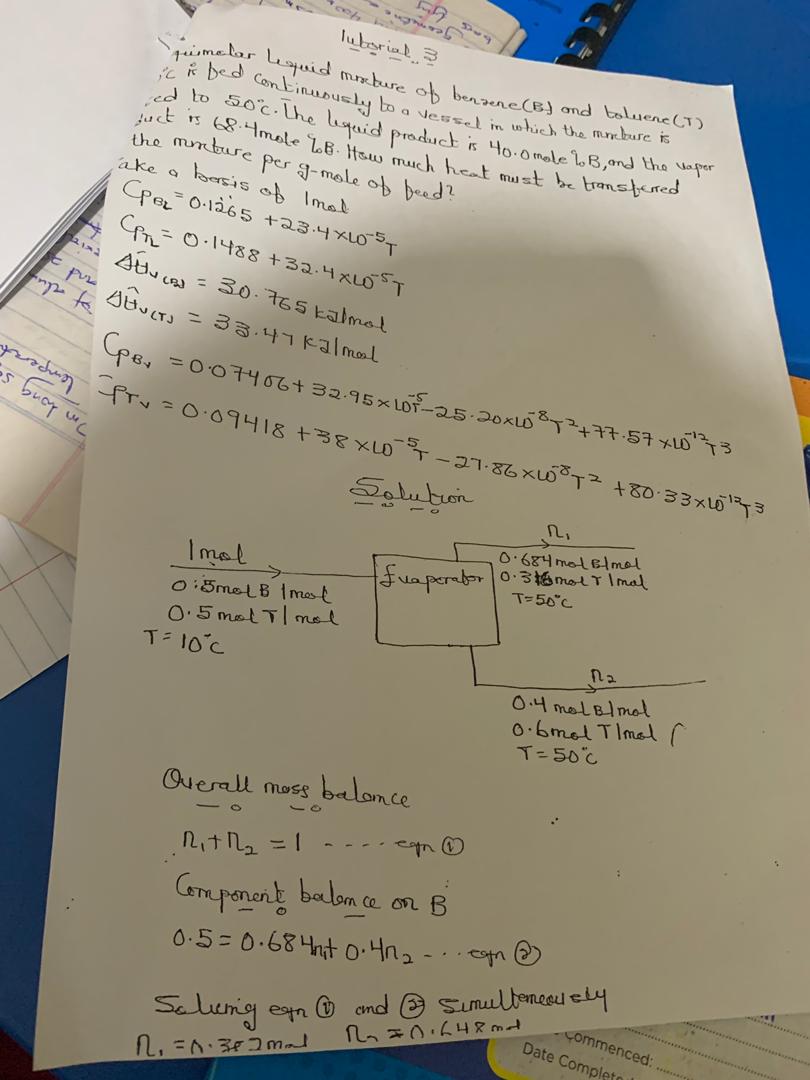 Tutorial 3
quimolar liquid mixture of benzene(B) and toluene(T)
°C is fed continuously to a vessel in which the mixture is
ed to 50°C. The liquid product is 40.0mole %B, and the vaper
duct is 68.4mole %B. How much heat must be transferred
the mixture per g-mole of feed?
ake a basis of 1mol
CpBL = 0.1265 + 23.4×10⁻⁵T
CpTL = 0.1488 + 32.4×10⁻⁵T
ΔĤv(B) = 30.765 kJ/mol
ΔĤv(T) = 33.47 kJ/mol
CpBv = 0.07406 + 32.95×10⁻⁵T - 25.20×10⁻⁸T² + 77.57×10⁻¹²T³
CpTv = 0.09418 + 38×10⁻⁵T - 27.86×10⁻⁸T² + 80.33×10⁻¹²T³
Solution
1mol
0.5mol B/mol
0.5mol T/mol
T = 10°C
Evaperator
n₁
0.684 mol B/mol
0.316mol T/mol
T=50°C
n₂
0.4 mol B/mol
0.6mol T/mol
T=50°C
Overall mass balance
n₁+n₂ = 1 ---- eqn ①
Component balance on B
0.5 = 0.684n₁+ 0.4n₂ --- eqn ②
Solving eqn ① and ② simultaneously
n₁ = 0.352mol n₂ = 0.648mol
Commenced:
Date Complete